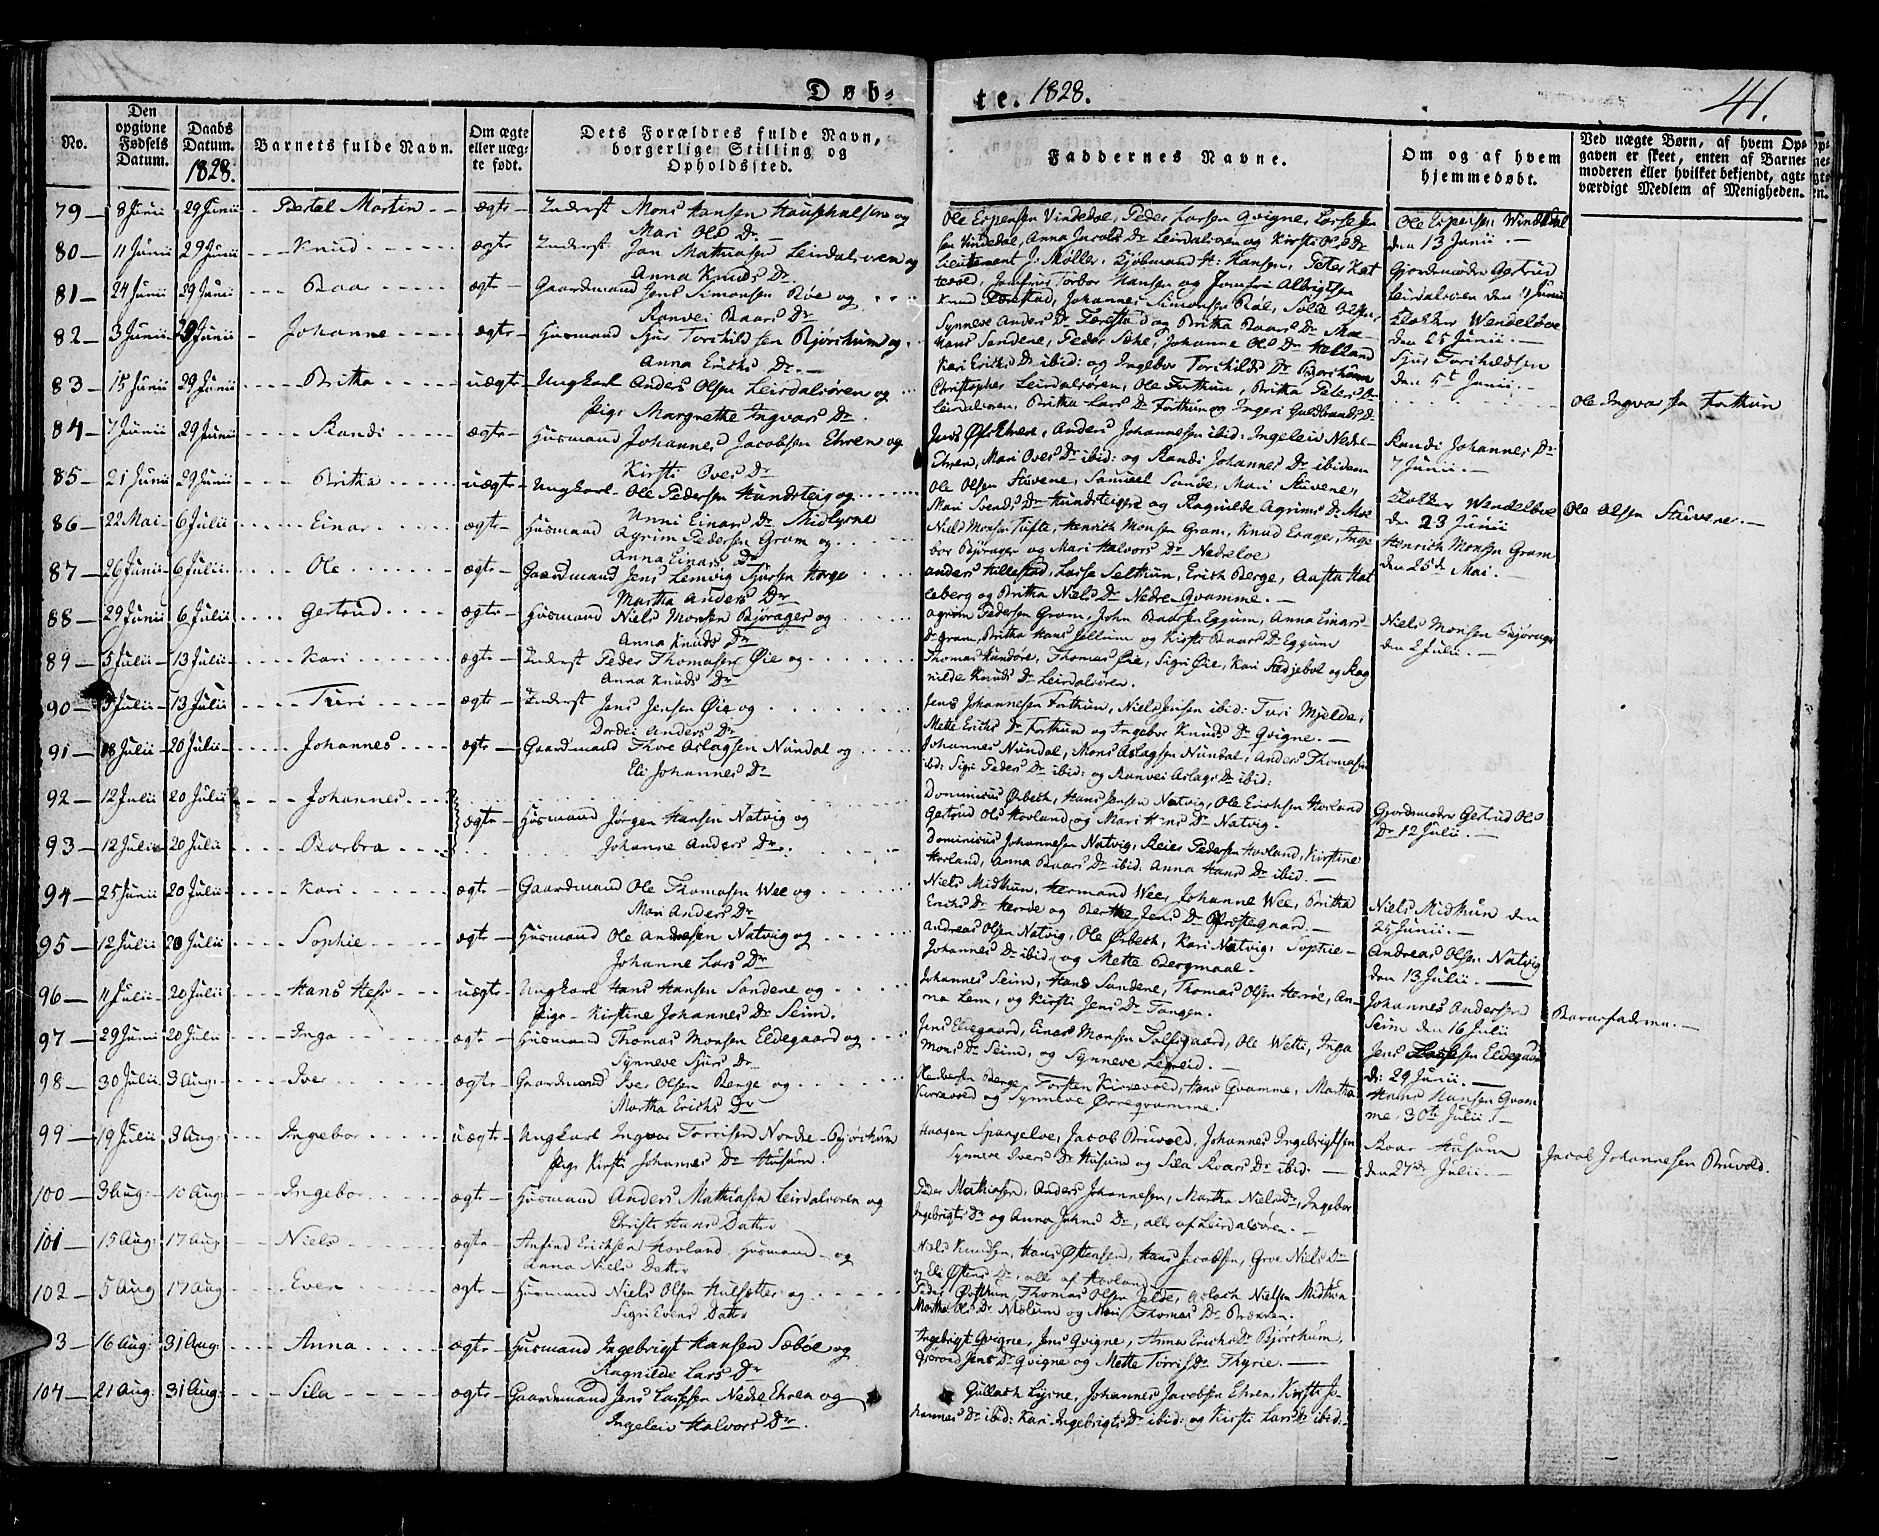 Døb-
te. 1828.
41.
No.
Den opgivne Fødsels Datum.
Daabs Datum. 1828.
Barnets fulde Navn.
Om ægte eller uægte født.
Dets Forældres fulde Navn, borgerlige Stilling og Opholdssted.
Faddernes Navne.
Om og af hvem hjemmedøbt.
Ved uægte Børn, af hvem Opgaven er skeet, enten af Barnemoderen eller hvilket bekjendt, agtværdigt Medlem af Menigheden.
79 8 Junii 29 Junii Bertel Martin ægte Inderst Mons Hansen og
Mari Ols Dr
Ole Espensen Vindedal, Peder Larsen Qvigne, Lasse
Vindedal, Anna Jacobs Dr Leirdalsøren og Kirsti Ols Dr
Ole Espensen Windedal
den 13 Junii.
80 11 Junii 29 Junii Knud ægte Inderst Jan Mathiasen Leirdalsøren og
Anna Knuds Dr
Lieutenant J. Møller, Kjøbmand H. Hansen, Peter
Jomfrue Hansen og Jomfru Albrigtsen
Gjordemoder Gertrud
Leirdalsøren den 11 Junii
81 24 Junii 29 Junii Baar ægte Gaardmand Jens Simonsen Bøe og
Ranvei Baars Dr
Knud Færestad, Johannes Simonsen
Synneve Anders Dr Færestad og Britha Baars Dr Moe
Klokker Wendelboe
den 25 Junii.
82 3 Junii 29 Junii Johanne ægte Husmand Sjur Torchildsen Bjørchum og
Anna Erichs Dr
Hans Sandene, Peder Johanne Ols Dr
Kari Erichs Dr ibid: og Ingebor Torchilds Dr Bjørchum
Sjur Torchildsen
den 5t Junii.
83 15 Junii 29 Junii Britha uægte Ungkarl Anders Olsen Leirdalsøren og
Pige Margrethe Ingvars Dr
Christopher Leirdalsøren, Ole Forthun, Britha Peters Dr
Leirdalsøren, Britha Lars Dr Forthun og Ingeri Guldbrands Dr
Ole Ingvarsen Forthun
84 7 Junii 29 Junii Randi ægte Husmand Johannes Jacobsen Ehren og
Kirsti Oves Dr
Jens Ehren, Anders Johannesen ibid: Ingeleiv Nedre-
Ehren, Mari Oves Dr ibid: og Randi Johannes Dr ibidem
Randi Johannes Dr
7 Junii.
85 21 Junii 29 Junii Britha uægte Ungkarl Ole Pedersen Hundsteig og
Unni Einars Dr Midlyrne
Ole Olsen Stuvene, Samuel Mari Stuvene,
Mari Svends Dr og Ragnilde Agrims Dr Moe
Klokker Wendelboe
den 23 Junii
Ole Olsen Stuvene.
86 22 Mai 6 Julii Einar ægte Husmand Agrim Pedersen Grom og
Anna Einars Dr
Niels Monsen Tufte, Henrich Monsen Gram, Knud Inge-
bor Bjørager og Mari Halvors Dr Nedreloe
Henrich Monsen Gram
den 25de Mai.
87 26 Junii 6 Julii Ole ægte Gaardmand Jens Lemvig Sjursen
Martha Anders Dr
Anders Hillestad, Lasse Selthun, Erich Berge,
og Britha Niels Dr Nedre-Qvamme.
88 29 Junii 6 Julii Gertrud ægte Husmand Niels Monsen Bjørager og
Anna Knuds Dr
Agrim Pedersen Gram, John Baarsen Eggum, Anna Einars-
Dr Gram, Britha Hans og Kirsti Baars Dr Eggum
Niels Monsen Bjørager
den 2 Julii.
89 5 Julii 13 Julii Kari ægte Inderst Peder Thomasen Øie og
Anna Knuds Dr
Thomas Thomas Øie, Sigri Øie, Kari og Rag-
nilde Knuds Dr Leirdalsøren.
90 Julii 13 Julii Turi ægte Inderst Jens Jensen Øie og
Dordei Anders Dr
Jens Johannesen Forthun, Niels Jensen ibid: Turi Mjelde,
Mette Erichs Dr Forthun og Ingebor Knuds Dr Qvigne.
91 Julii 20 Julii Johannes ægte Gaardmand Thoe Aslagsen Nundal og
Eli Johannes Dr
Johannes Nundal, Mons Aslagsen Nundal, Anders Thomasen
ibd: Sigri Peders Dr ibid: og Ranvei Aslags Dr ibid:
92 12 Julii 20 Julii Johannes
93 12 Julii 20 Julii Barbra
ægte Husmand Jørgen Hansen Natvig og
Johanne Anders Dr.
Dominicus Ørbech, Hans Jensen Natvig, Ole Erichsen Hovland
Gertrud Ols Hovland og Mari Dr Natvig.
Dominicus Johannesen Natvig, Reier Pedersen Hovland, Kirstine
Hovland, Anna Baars Dr ibid. Anna Hans Dr ibid.
Gjordemoder Gertrud Ols
Dr 12 Julii.
94 25 Junii 20 Julii Kari ægte Gaardmand Ole Thomasen Wee og
Mari Anders Dr
Niels Midthun, Hermand Wee, Johanne Wee, Britha
Erichs Dr og Berthe Jens Dr
Niels Midthun den
25 Junii.
95 12 Julii 20 Julii Sophie ægte Husmand Ole Andresen Natvig og
Johanne Lars Dr
Andreas Olsen Natvig, Ole Ørbech, Kari Natvig, Sophie
Johannes Dr ibid: og Mette Bergmaal.
Andreas Olsen Natvig
den 13 Julii.
96 11 Julii 20 Julii Hans uægte Ungkarl Hans Hansen Sandene og
Pige Kirstine Johannes Dr Seim.
Johannes Seim, Hans Sandene, Thomas Olsen An-
na Lem, og Kirsti Jens Dr Tangen.
Johannes Andersen
Seim den 16 Julii
Barnefaderen.
97 29 Junii 20 Julii Inga ægte Husmand Thomas Monsen Eldegaard og
Synneve Sjurs Dr
Jens Eldegaard, Einar Monsen Ole Wetti, Inga
Mons Dr Seim, og Synneve
Jens Eldegaard
d: 29 Junii.
98 30 Julii 3 Aug: Iver ægte Gaardmand Iver Olsen Berge og
Martha Erichs Dr
Berge, Torsten Kirrevold, Hans Qvamme, Martha
Kirrevold og Synneve Øvreqvamme.
Hans Hansen Qvam-
me 30te Julii
99 19 Julii 3 Aug: Ingebor uægte Ungkarl Ingvar Torrisen Nordre-Bjørchum
Pige Kirsti Johannes Dr Husum.
Haagen Spangelve, Jacob Bruvold, Johannes Ingebrigtsen
Synneve Ivers Dr Husum og Sila Roars Dr ibid.
Roar Husum
den 27de Julii.
Jacob Johannesen Bruvold.
100 3 Aug: 10 Aug: Ingebor ægte Husmand Anders Mathiasen Leirdalsøren og
Christi Hans Datter
Peder Mathiasen, Anders Johannesen, Martha Niels Dr, Ingebor
Ingebrigts Dr og Anna Johns Dr, alle af Leirdalsøren.
101 15 Aug: 17 Aug Niels ægte Anfind Erichsen Hovland, Husmand og
Anna Niels Datter
Niels Knudsen, Hans Østensen, Hans Jacobsen, Groe Niels Dr
og Eli Østens Dr, alle af Hovland.
102 5 Aug 17 Aug Even ægte Husmand Niels Olsen Hulsetter og
Sigri Evens Datter
Peder Thomas Olsen Aslach Nielsen Midthun
Martha Ols Dr Molum og Mari Thomas Dr
3 16 Aug: 31 Aug: Anna ægte Husmand Ingebrigt Hansen Sæbøe og
Ragnilde Lars Dr
Ingebrigt Qvigne, Jens Qvigne, Anna Erichs Dr Bjørchum,
Jens Dr Qvigne og Mette Torris Dr Thyrie.
104 21 Aug: 31 Aug: Sila ægte Gaardmand Jens Lassesen Nedre Ehren og
Ingeleiv Halvors Dr
Gullach Lysne, Johannes Jacobsen Ehren, Kirsti Jo-
hannes Dr ibid: Kari Ingebrigts Dr ibid: og Kirsti Lars Dr ibid.